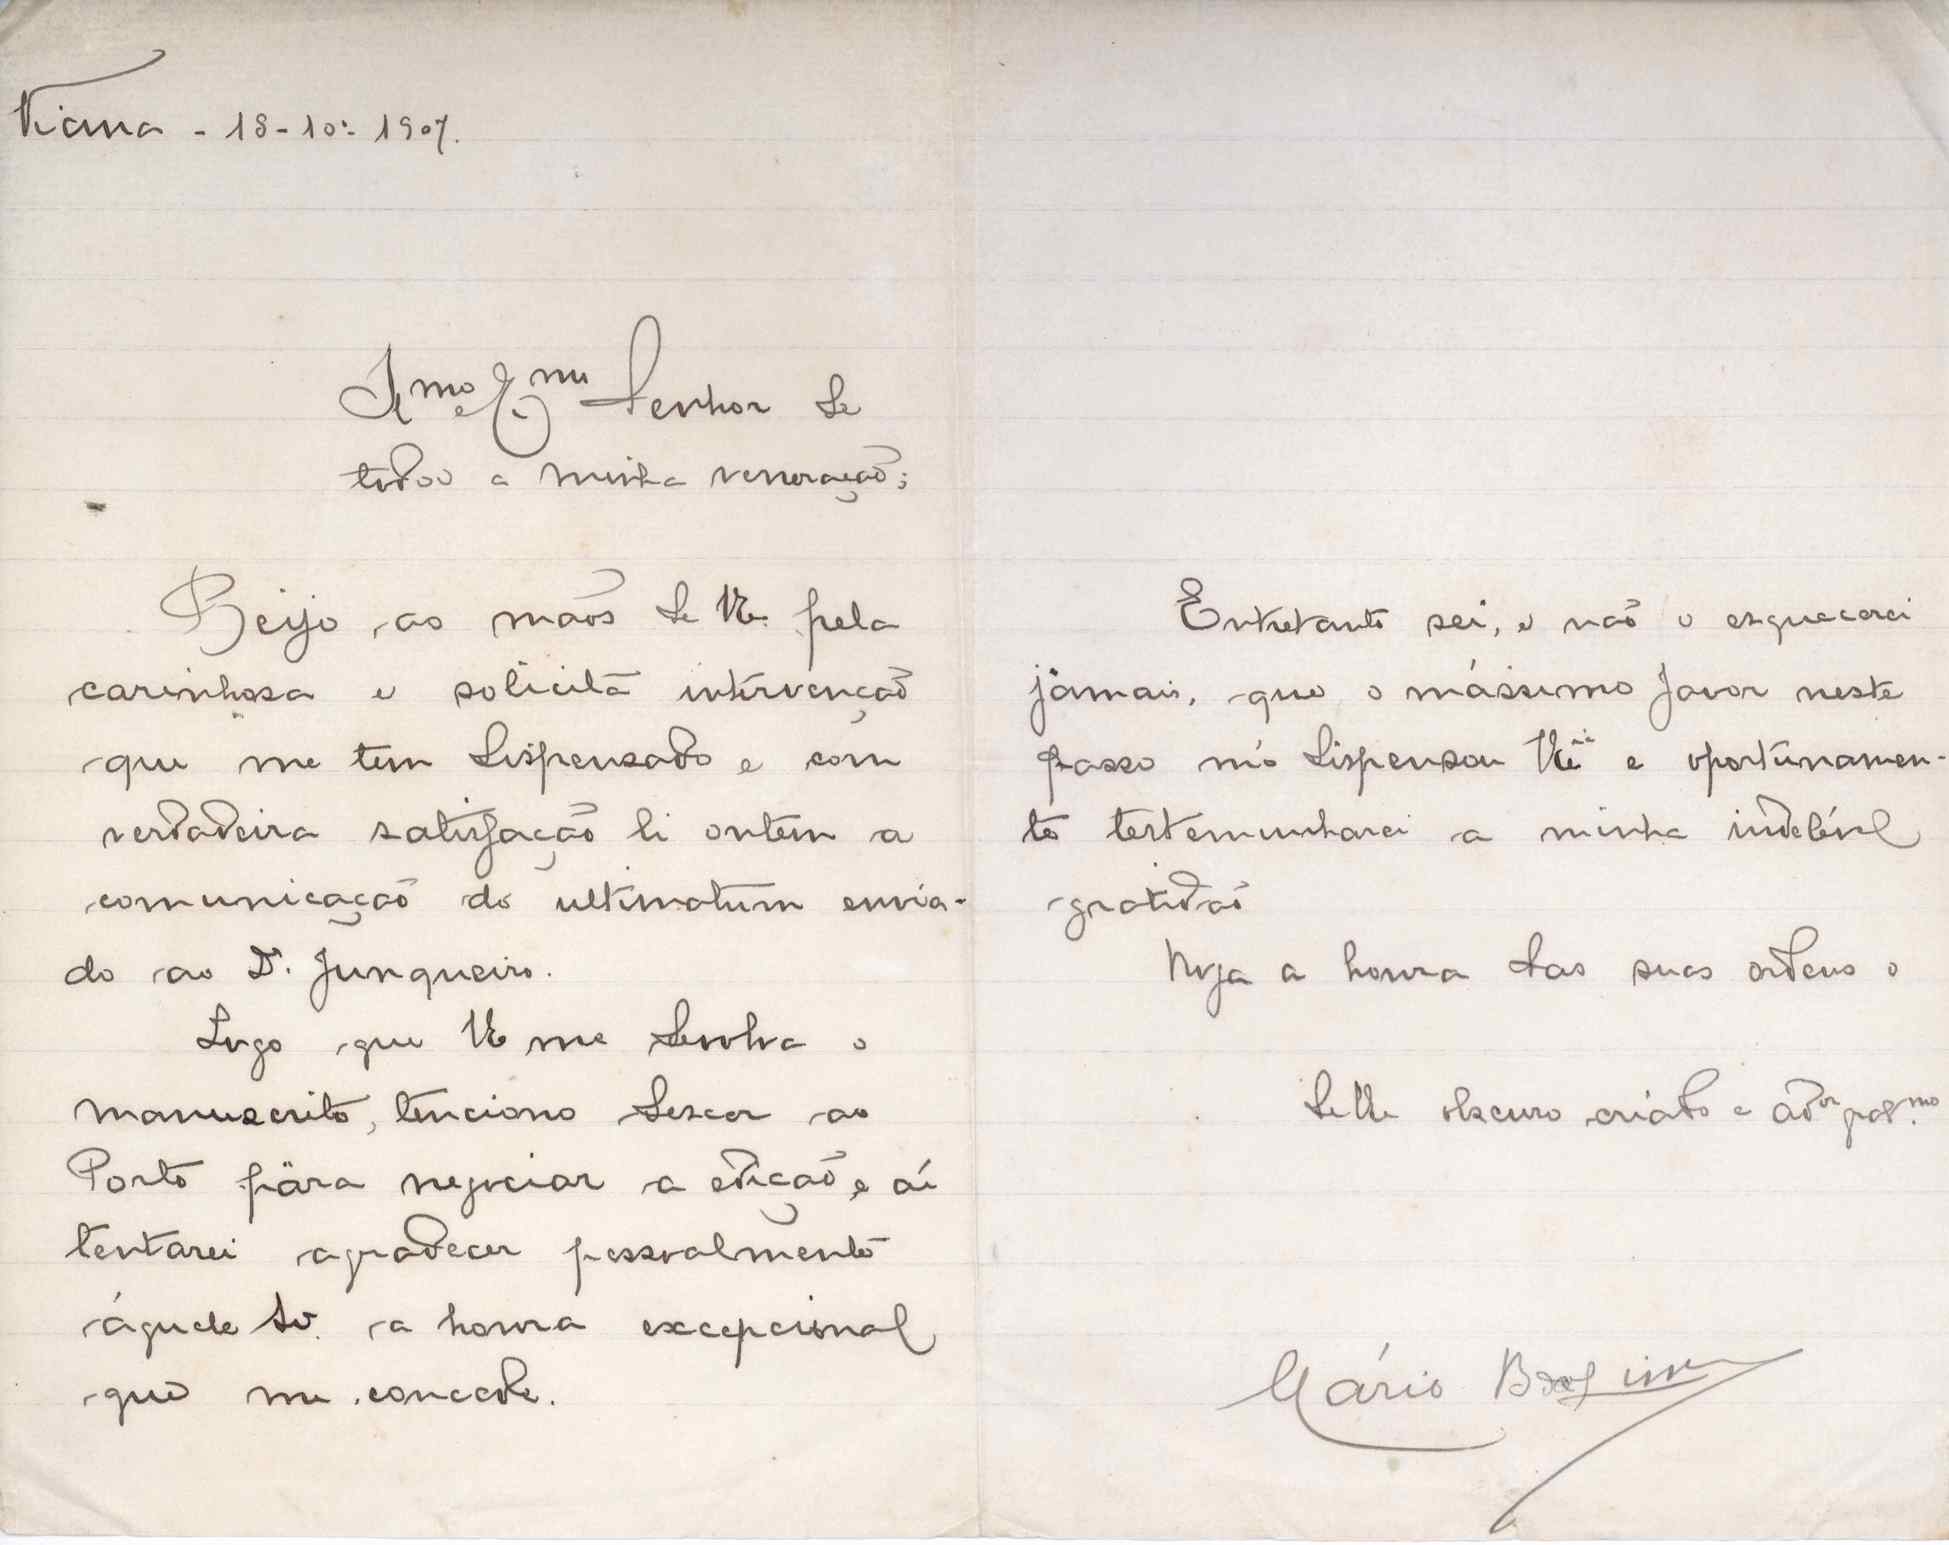 Viana - 18-10º- 1907.
Il.mo e Ex.mo Senhor de
toda a minha veneração;
Beijo as mãos de V.E. pela
carinhosa e solícita intervenção
que me tem dispensado e com
verdadeira satisfação li ontem a
comunicação do ultimatum envia-
do ao Dr. Junqueiro.
Logo que V.E me devolva o
manuscrito, tenciono descer ao
Porto pâra negociar a edição, e aí
tentarei agradecer pessoalmente
áquele Sr. a honra excepcional
que me concede.
Entretanto sei, e não o esquecerei
jâmais, que o mássimo favor neste
passo m'o dispensou V.E.ia e oportunamen-
te testemunharei a minha indelével
gratidão
Veja a honra das suas ordens o
obscuro criado e ad.or
Mário